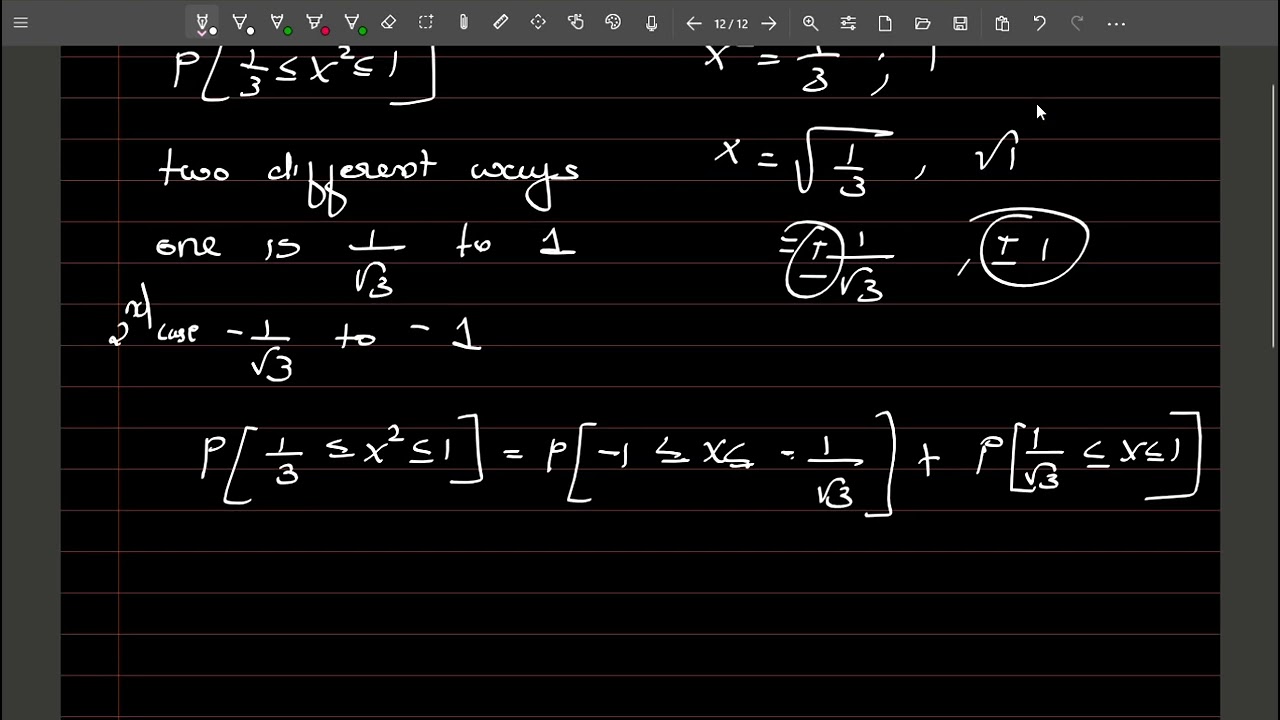 12 / 12
P[1/3 ≤ x² ≤ 1]
x² = 1/3 ; 1
two different ways
x = √(1/3) , √1
one is 1/√3 to 1
= ± 1/√3 , ± 1
2nd case - 1/√3 to - 1
P[1/3 ≤ x² ≤ 1] = P[-1 ≤ x ≤ - 1/√3] + P[1/√3 ≤ x ≤ 1]